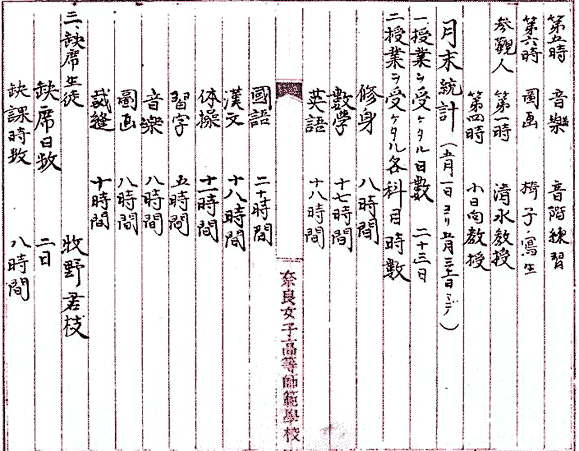 第五時 音樂 音階練習
第六時 圖画 椅子ノ寫生
参觀人 第一時 清水教授
第四時 小日向教授
月末統計（五月一日ヨリ五月三十一日マデ）
一授業ヲ受ケタル日數 二十三日
二授業ヲ受ケタル各科目時數
修身 八時間
數學 十七時間
英語 十八時間
奈良女子高等師範學校
國語 二十時間
漢文 十八時間
体操 十一時間
習字 五時間
音樂 八時間
圖画 八時間
裁縫 十時間
三、缺席生徒 牧野君枝
缺席日数 二日
缺課時数 八時間